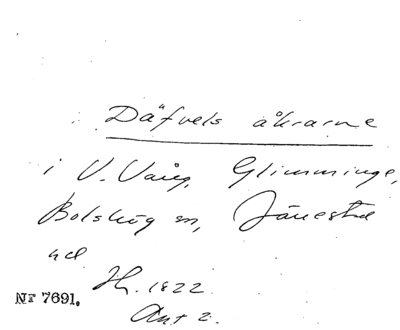 Däfvels åkrarne
i V. Vång, Glimminge,
Bolshög sn, Järrestad
hd
Jh. 1822.
Akt 2.
Nr 7691.